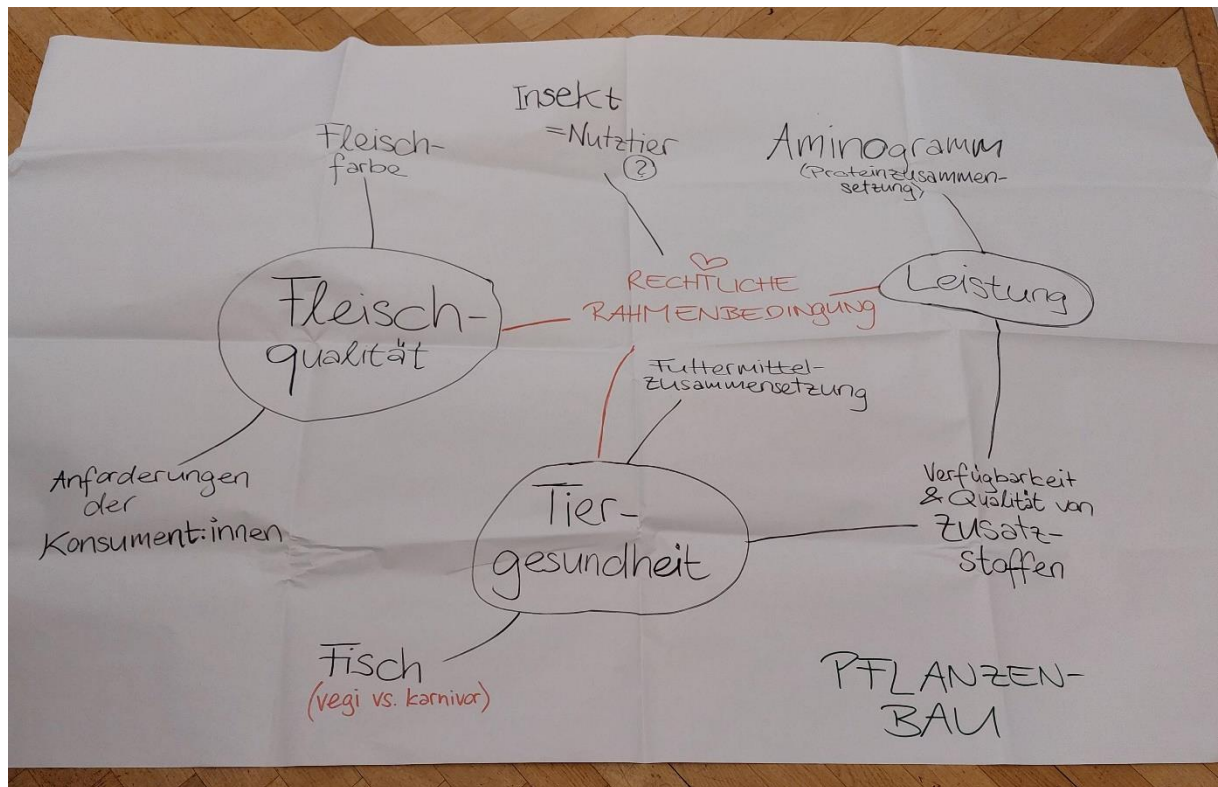 Insekt
=Nutztier
?
Fleisch-
farbe
Aminogramm
(Proteinzusammen-
setzung)
Fleisch-
qualität
RECHTLICHE
RAHMENBEDINGUNG
Leistung
Futtermittel-
zusammensetzung
Anforderungen
der
Konsument:innen
Tier-
gesundheit
Verfügbarkeit
& Qualität von
Zusatz-
stoffen
Fisch
(vegi vs. karnivor)
PFLANZEN-
BAU